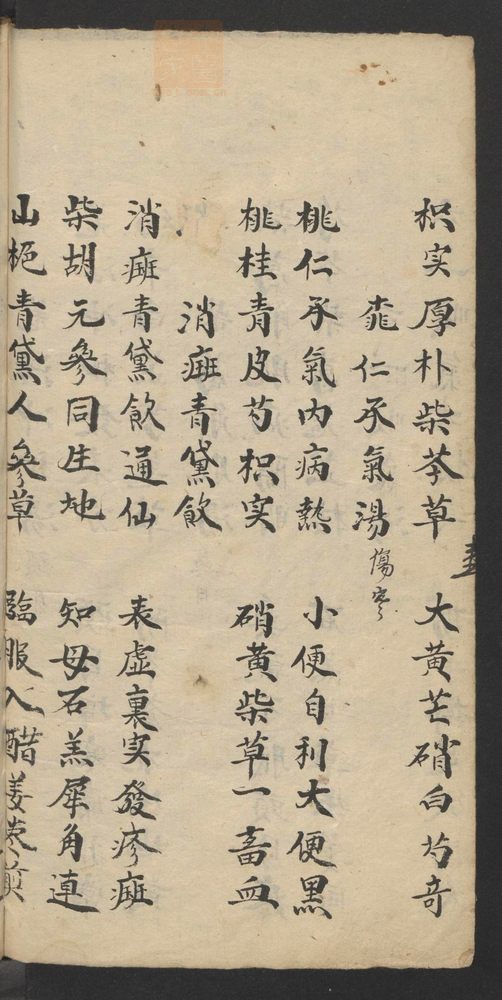 枳实厚朴柴芩草　大黄芒硝白芍奇
桃仁承氣湯 傷寒
桃仁承氣内病熱　小便自利大便黑
桃桂青皮芍枳实　硝黄柴草一畜血
消癍青黛飲
消癍青黛飲通仙　表虚裏实發疹癍
柴胡元參同生地　知母石羔犀角連
山栀青黛人參草　臨服入醋姜枣煎